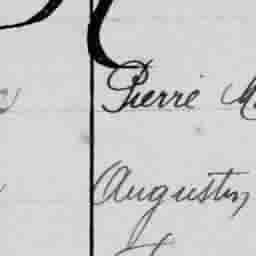 Pierre M
Augustin